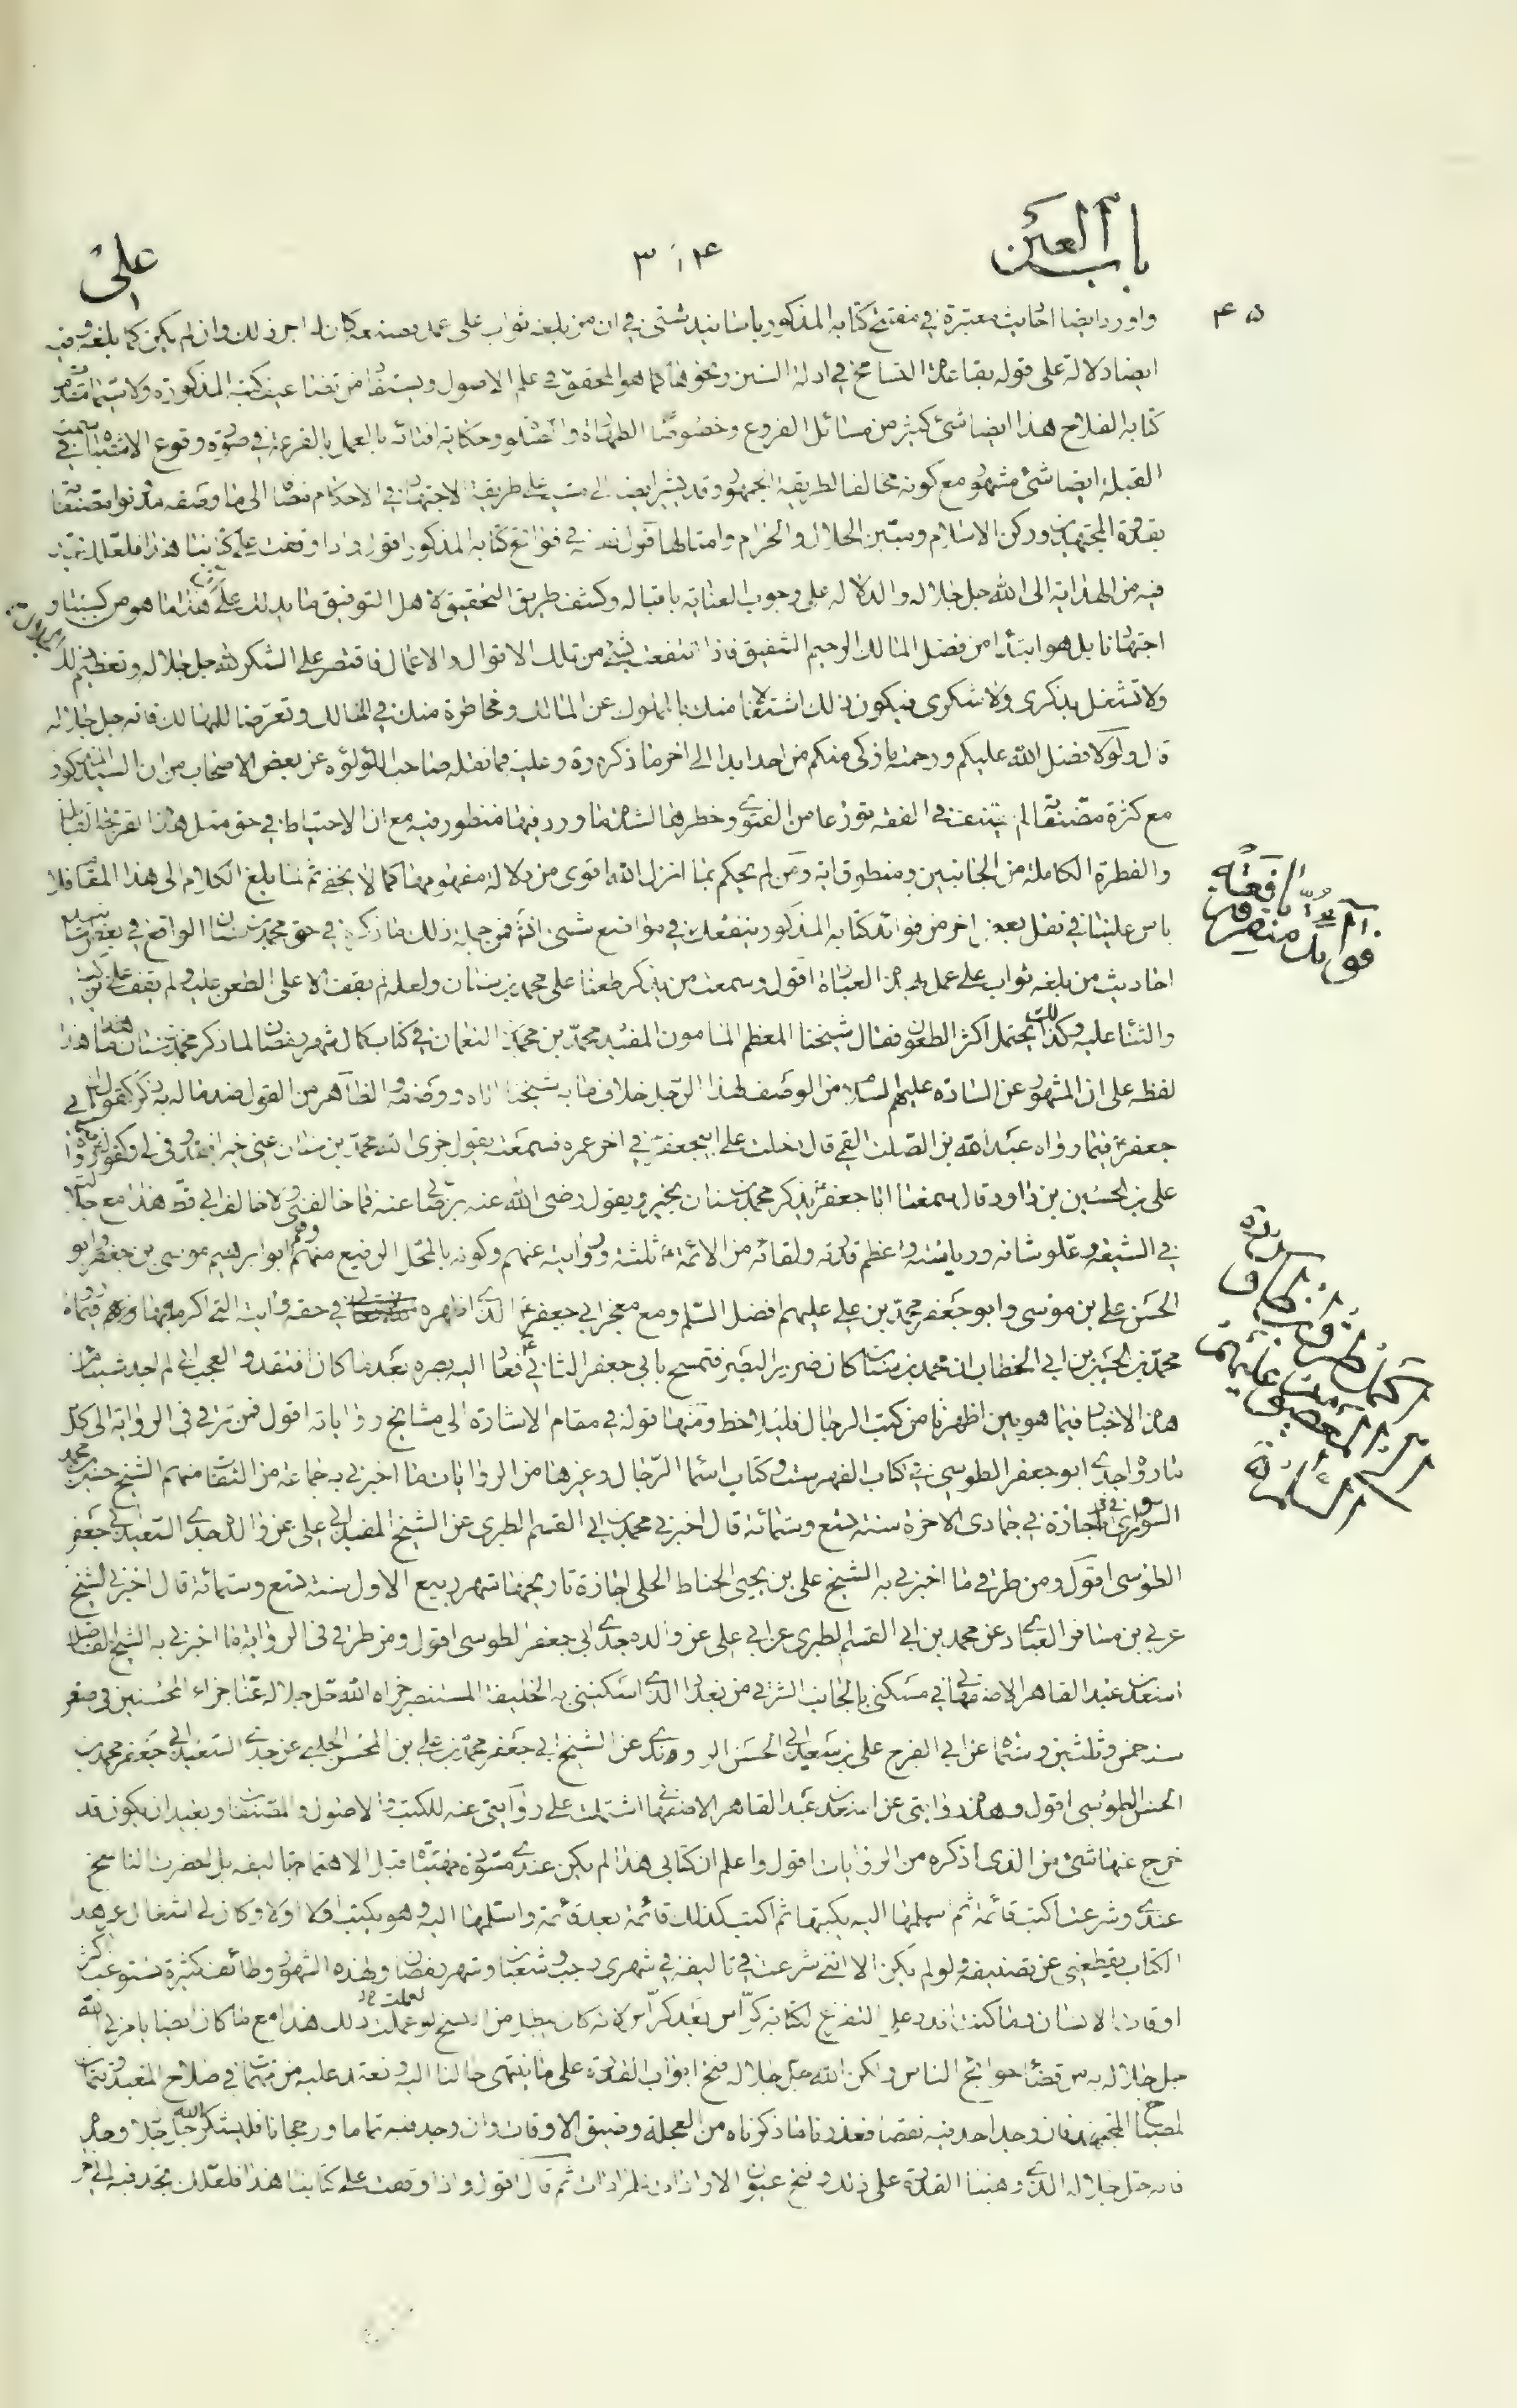 باب العين
٣٠٤
على
٤٥
واورد ايضا احاديث معتبرة في مفتتح كتابه المذكور باسانيد شتى في ان من بلغه ثواب على عمل فصنعه كان له اجر ذلك وان لم يكن كما بلغه وفيه
ايضا دلالة على قوله بقاعدة التسامح في ادلة السنن ونحوها كما هو المحقق في علم الاصول ويستفاد من تضاعيف كتبه المذكورة ولا سيما مقدمة
كتابه الفلاح هذا ايضا شئ كثير من مسائل الفروع وخصوصا الطهارة والصلوة وحكاية افتائه بالعمل بالقرعة في صورة وقوع الاشتباه في سمت
القبلة ايضا شئ مشهور مع كونه مخالفا لطريقة الجمهور وقد يشير ايضا الى مشيه على طريقة الاجتهاد في الاحكام مضافا الى ما وصفه مدونوا تصنيفاته
بقدوة المجتهدين وركن الاسلام ومبين الحلال والحرام وامثالها قوله في فواتح كتابه المذكور اقول واذا وقفت على كتابنا هذا فلعلك تجد
فيه من الهداية الى الله جل جلاله والدلالة على وجوب العناية باقباله وكشف طريق التحقيق لاهل التوفيق ما يدلك على ان هذا ما هو من كسبنا و
اجتهادنا بل هو ابتداء من فضل المالك الرحيم الشفيق فاذا انتفعت بشئ من تلك الاقوال والاعمال فاقتصر على الشكر لله جل جلاله وتعظيم لذلك
ولا تشتغل بذكرى ولا شكرى فيكون ذلك اشتغالا منك بالمملوك عن المالك ومخاطرة منك في المسالك وتعرضا للمهالك فانه جل جلاله
قال ولولا فضل الله عليكم ورحمته ما زكى منكم من احد ابدا الى اخر ما ذكره ره وعليه فما نقله صاحب اللؤلؤة عن بعض الاصحاب من ان السيد المذكور
مع كثرة مصنفاته لم يتصنف في الفقه تورعا من الفتوى وخطرها لشدة ما ورد فيها منظور فيه مع ان الاحتياط في حق مثل هذا القريحة القابلة
والفطرة الكاملة من الجانبين ومنطوق اية ومن لم يحكم بما انزل الله اقوى من دلالة مفهومها كما لا يخفى ثم لما بلغ الكلام الى هذا المقام فلا
باس علينا في نقل بعض اخر من فوائد كتابه المذكور ينفعك في مواضع شتى انشء فمن جملة ذلك ما ذكره في حق محمد بن سنان الواقع في بعض اسانيد
احاديث من بلغه ثواب على عمل بهذه العبارة اقول وسمعت من يذكر طعنا على محمد بن سنان ولعله لم يقف الا على الطعن عليه ولم يقف على تزكيته
والثناء عليه وكذلك يحتمل اكثر الطعون فقال شيخنا المعظم المامون المفيد محمد بن محمد بن النعمان في كتاب كمال شهر رمضان لما ذكر محمد بن سنان ما هذا
لفظه على ان المشهور عن السادة عليهم السلام من الوصف لهذا الرجل خلاف ما به شيخنا اتاه ووصفه والظاهر من القول ضد ما له به ذكر كقول ابي
جعفر ع فيما رواه عبد الله بن الصلت القمي قال دخلت على ابيجعفر ع في اخر عمره فسمعته يقول جزى الله محمد بن سنان عني خيرا فقد وفى لي وكقوله فيما رواه
علي بن الحسين بن داود قال سمعنا ابا جعفر ع يذكر محمد بن سنان بخير ويقول رضي الله عنه برضائي عنه فما خالفني ولا خالف ابي قط هذا مع جلالته
في الشيعة وعلو شانه ورياسته وعظم قدره ولقائه من الائمة ع ثلثة وروايته عنهم وكونه بالمحل الرفيع منهم وهم ابو ابرهيم موسى بن جعفر وابو
الحسن علي بن موسى وابو جعفر محمد بن علي عليهم افضل السلم ومع معجز ابي جعفر ع الذي اظهره في حقه وايته التي اكرمه بها فيما رواه
محمد بن الحسين بن ابي الخطاب ان محمد بن سنان كان ضرير البصر فتمسح بابي جعفر الثاني ع فعاد اليه بصره بعد ما كان افتقده والعجب اني لم اجد شيئا من
هذه الاخبار فيما هو بين اظهرنا من كتب الرجال فليلاحظ ومنها قوله في مقام الاشارة الى مشايخ رواياته اقول فمن طرقي في الرواية الى كل
ما رواه جدي ابو جعفر الطوسي في كتاب الفهرست وكتاب اسماء الرجال وغيرها من الروايات ما اخبرني به جماعة من الثقات منهم الشيخ حسين بن محمد
السوراوي اجازة في جمادى الاخرة سنة تسع وستمائة قال اخبرني محمد بن ابي القسم الطبري عن الشيخ المفيد ابي علي عن والده جدي السعيد ابي جعفر
الطوسي اقول ومن طرقي ما اخبرني به الشيخ علي بن يحيى الحناط الحلي اجازة تاريخها شهر ربيع الاول سنة تسع وستمائة قال اخبرني الشيخ
عربي بن مسافر العبادي عن محمد بن ابي القسم الطبري عن ابي علي عن والده جدي ابي جعفر الطوسي اقول ومن طرقي في الرواية ما اخبرني به الشيخ الفاضل
اسعد بن عبد القاهر الاصفهاني في مسكني بالجانب الشرقي من بغداد الذي اسكنني به الخليفة المستنصر جزاه الله جل جلاله عنا جزاء المحسنين في صفر
سنة خمس وثلثين وستمائة عن ابي الفرج علي بن سعيد ابي الحسن الراوندي عن الشيخ ابي جعفر محمد بن علي بن المحسن الحلبي عن جدي السعيد ابي جعفر محمد بن
الحسن الطوسي اقول وهذه روايتي عن اسعد بن عبد القاهر الاصفهاني اشتملت على روايتي عنه للكتب والاصول والمصنفات وبعيد ان يكون قد
خرج عنها شئ من الذي اذكره من الروايات اقول واعلم ان كتابي هذا لم يكن عندي مسودة مهيئة قبل الاهتمام بتاليفه بل احضرت الناسخ
عندي وشرعت اكتب قائمة ثم اسلمها اليه يكتبها ثم اكتب كذلك قائمة بعد قائمة واسلمها اليه وهو يكتب اولا اولا وكان لي اشغال عن هذا
الكتاب يقطعني عن تصنيفه ولو لم يكن الا انني شرعت في تاليفه في شهري رجب وشعبان وشهر رمضان ولهذه الشهور وظائف كثيرة تستوعب اكثر
اوقات الانسان وما كنت اقدر على التفرغ لكتابة كراس بعد كراس لانه كان يبطل من النسخ لو عملت ذلك هذا مع ما كان ايضا يامرني الله
جل جلاله به من قضاء حوائج الناس ولكن الله جل جلاله فتح ابواب القدرة على ما ينتهي حالنا اليه ونعتمد عليه من مهمات في صلاح المتعبد وتتمات
لمصباح المتهجد فان وجد احد فيه نقصا فعذرنا ما ذكرناه من العجلة وضيق الاوقات وان وجد فيه تماما ورجحانا فليشكر الله جل جلاله وحده
فانه جل جلاله الذي وهبنا القدرة على ذلك وفتح عيون الارادات للمرادات ثم قال اقول واذا وقفت على كتابنا هذا فلعلك تجد فيه الى اخر
فوائد متفرقة